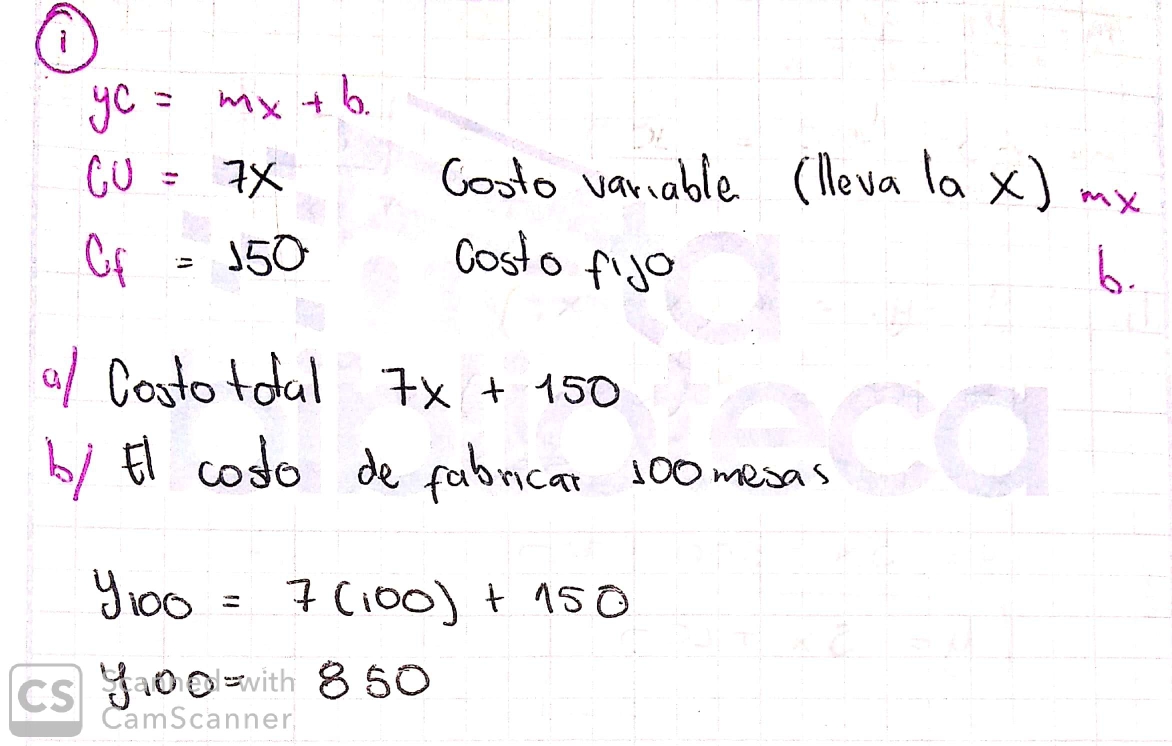 1
yc = mx + b.
CU = 7x Costo variable (lleva la x) mx
Cf = 150 Costo fijo b.
a/ Costo total 7x + 150
b/ El costo de fabricar 100 mesas
y100 = 7(100) + 150
y100 = 850
CS Scanned with
CamScanner
la
biblioteca